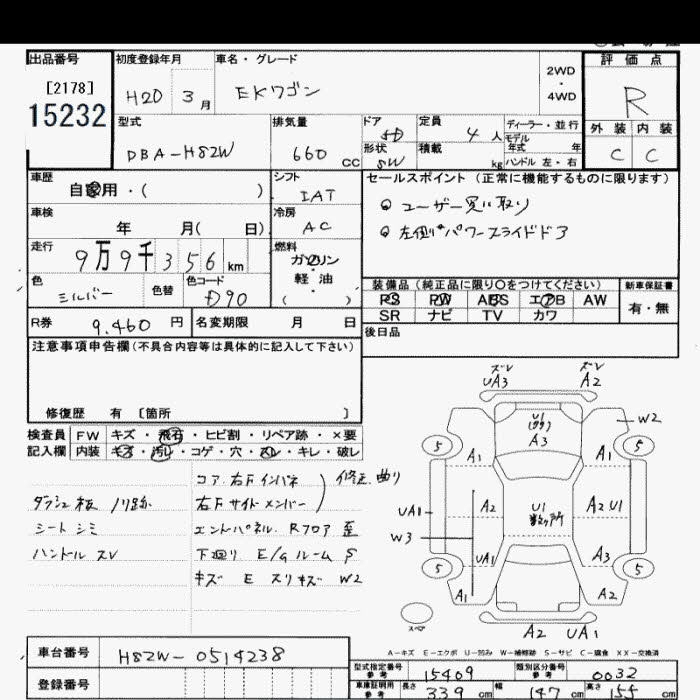 出品番号
[2178]
15232
初度登録年月
H20 3月
車名・グレード
EKワゴン
2WD
・
4WD
評価点
R
外装 内装
C C
型式
DBA-H82W
排気量
660 CC
ドア
5D
形状
SW
定員
4人
積載
kg
ディーラー・並行
モデル
年式 年
ハンドル 左・右
車歴
自家用・( )
シフト
IAT
セールスポイント (正常に機能するものに限ります)
◎ ユーザー買い取り
◎ 左側 パワースライドドア
車検
年 月( 日)
冷房
AC
走行
9万9千356km
燃料
ガソリン
・
軽油
( )
色
シルバー
色替
色コード
D90
装備品 (純正品に限り○をつけてください)
新車保証書
PS PW ABS エアB AW
有・無
SR ナビ TV カワ
R券
9.460円
名変期限 月 日
後日品
注意事項申告欄 (不具合内容等は具体的に記入して下さい)
修復歴 有 [箇所 ]
検査員
記入欄
FW キズ・飛石・ヒビ割・リペア跡・×要
内装 キズ・汚レ・コゲ・穴・スレ・キレ・破レ
コア.右Fインパネ
修正.曲り
ダッシュ板 ノリ跡
右Fサイドメンバー
シート シミ
エンドパネル Rフロア 歪
ハンドル スレ
下廻リ E/Gルーム S
キズ E スリキズ W2
ズレ
UA3
ズレ
A2
U1
A3
W2
5
5
A1
A1
UA1
A2
U1
数ヶ所
A2 U1
W3
UA1
A3
5
5
A1
A2
スペア
A2 UA1
A-キズ E-エクボ U-凹み W-補修跡 S-サビ C-腐食 XX-交換済
車台番号
H82W-0514238
登録番号
型式指定番号
参考
15409
類別区分番号
参考
0032
車庫証明用
参考
長さ
339 cm
幅
147 cm
高さ
155 cm